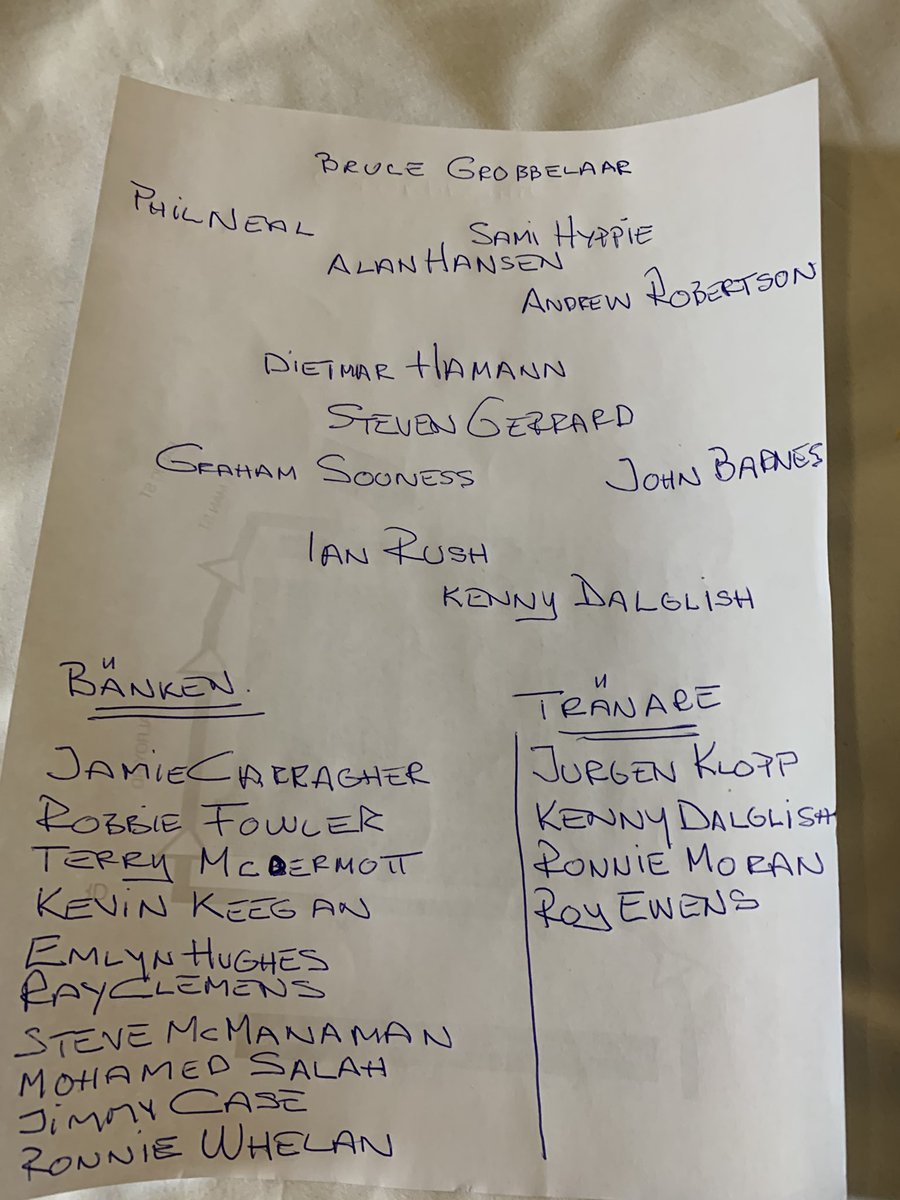 BRUCE GROBBELAAR
PHIL NEAL
SAMI HYPPIE
ALAN HANSEN
ANDREW ROBERTSON
DIETMAR HAMANN
STEVEN GERRARD
GRAHAM SOONESS
JOHN BARNES
IAN RUSH
KENNY DALGLISH
BÄNKEN.
JAMIE CARRAGHER
ROBBIE FOWLER
TERRY McDERMOTT
KEVIN KEEGAN
EMLYN HUGHES
RAY CLEMENS
STEVE McMANAMAN
MOHAMED SALAH
JIMMY CASE
RONNIE WHELAN
TRÄNARE
JURGEN KLOPP
KENNY DALGLISH
RONNIE MORAN
ROY EWENS